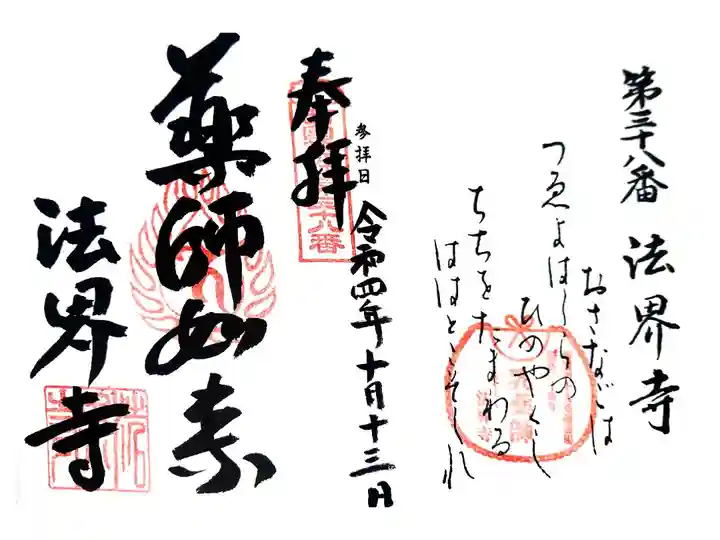 第三十八番 法界寺
おさなごは
つゑよはしらの
ひめやくし
ちちをたまわる
ははとこそしれ
参拝日 令和四年十月十三日
奉拝
薬師如来
法界寺